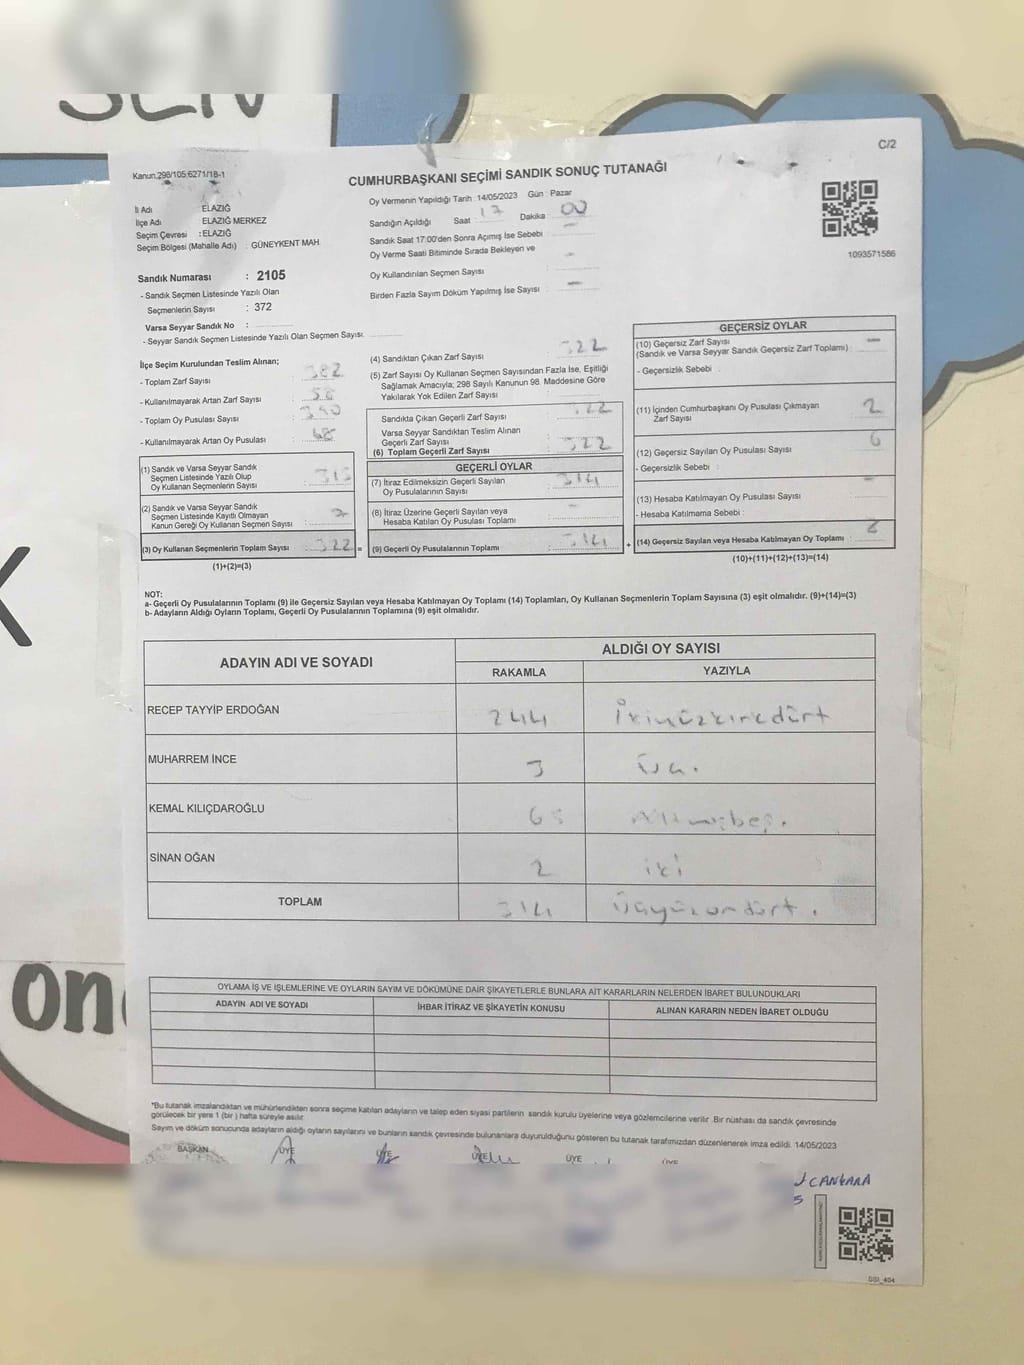 ŞEN
C/2
Kanun,298/105:6271/18-1
CUMHURBAŞKANI SEÇİMİ SANDIK SONUÇ TUTANAĞI
1093571586
İl Adı : ELAZIĞ
İlçe Adı : ELAZIĞ MERKEZ
Seçim Çevresi : ELAZIĞ
Seçim Bölgesi (Mahalle Adı) : GÜNEYKENT MAH
Sandık Numarası : 2105
- Sandık Seçmen Listesinde Yazılı Olan
Seçmenlerin Sayısı : 372
Varsa Seyyar Sandık No :
- Seyyar Sandık Seçmen Listesinde Yazılı Olan Seçmen Sayısı:
Oy Vermenin Yapıldığı Tarih : 14/05/2023 Gün : Pazar
Sandığın Açıldığı Saat 17 Dakika : 00
Sandık Saat 17:00'den Sonra Açımış İse Sebebi : -
Oy Verme Saati Bitiminde Sırada Bekleyen ve
Oy Kullandırılan Seçmen Sayısı : -
Birden Fazla Sayım Döküm Yapılmış İse Sayısı : -
İlçe Seçim Kurulundan Teslim Alınan;
- Toplam Zarf Sayısı : 382
- Kullanılmayarak Artan Zarf Sayısı :
- Toplam Oy Pusulası Sayısı : 390
- Kullanılmayarak Artan Oy Pusulası : 68
(1) Sandık ve Varsa Seyyar Sandık
Seçmen Listesinde Yazılı Olup
Oy Kullanan Seçmenlerin Sayısı :
(2) Sandık ve Varsa Seyyar Sandık
Seçmen Listesinde Kayıtlı Olmayan
Kanun Gereği Oy Kullanan Seçmen Sayısı :
(3) Oy Kullanan Seçmenlerin Toplam Sayısı : 322 =
(1)+(2)=(3)
(4) Sandıktan Çıkan Zarf Sayısı : 322
(5) Zarf Sayısı Oy Kullanan Seçmen Sayısından Fazla İse, Eşitliği
Sağlamak Amacıyla; 298 Sayılı Kanunun 98. Maddesine Göre
Yakılarak Yok Edilen Zarf Sayısı :
Sandıkta Çıkan Geçerli Zarf Sayısı : 322
Varsa Seyyar Sandıktan Teslim Alınan
Geçerli Zarf Sayısı
(6) Toplam Geçerli Zarf Sayısı : 322
GEÇERLİ OYLAR
(7) İtiraz Edilmeksizin Geçerli Sayılan
Oy Pusulalarının Sayısı : 314
(8) İtiraz Üzerine Geçerli Sayılan veya
Hesaba Katılan Oy Pusulası Toplamı : -
(9) Geçerli Oy Pusulalarının Toplamı : 314 +
GEÇERSİZ OYLAR
(10) Geçersiz Zarf Sayısı
(Sandık ve Varsa Seyyar Sandık Geçersiz Zarf Toplamı) : -
- Geçersizlik Sebebi :
(11) İçinden Cumhurbaşkanı Oy Pusulası Çıkmayan
Zarf Sayısı : 2
(12) Geçersiz Sayılan Oy Pusulası Sayısı : 6
- Geçersizlik Sebebi :
(13) Hesaba Katılmayan Oy Pusulası Sayısı : -
- Hesaba Katılmama Sebebi :
(14) Geçersiz Sayılan veya Hesaba Katılmayan Oy Toplamı : 8
(10)+(11)+(12)+(13)=(14)
NOT:
a- Geçerli Oy Pusulalarının Toplamı (9) ile Geçersiz Sayılan veya Hesaba Katılmayan Oy Toplamı (14) Toplamları, Oy Kullanan Seçmenlerin Toplam Sayısına (3) eşit olmalıdır. (9)+(14)=(3)
b- Adayların Aldığı Oyların Toplamı, Geçerli Oy Pusulalarının Toplamına (9) eşit olmalıdır.
ADAYIN ADI VE SOYADI
ALDIĞI OY SAYISI
RAKAMLA YAZIYLA
RECEP TAYYİP ERDOĞAN 244 İkiyüzkırkdört
MUHARREM İNCE 3 Üç.
KEMAL KILIÇDAROĞLU 65 Altmışbeş.
SİNAN OĞAN 2 iki
TOPLAM 314 Üçyüzondört.
OYLAMA İŞ VE İŞLEMLERİNE VE OYLARIN SAYIM VE DÖKÜMÜNE DAİR ŞİKAYETLERLE BUNLARA AİT KARARLARIN NELERDEN İBARET BULUNDUKLARI
ADAYIN ADI VE SOYADI İHBAR İTİRAZ VE ŞİKAYETİN KONUSU ALINAN KARARIN NEDEN İBARET OLDUĞU
*Bu tutanak imzalandıktan ve mühürlendikten sonra seçime katılan adayların ve talep eden siyasi partilerin sandık kurulu üyelerine veya gözlemcilerine verilir. Bir nüshası da sandık çevresinde
görülecek bir yere 1 (bir) hafta süreyle asılır.
Sayım ve döküm sonucunda adayların aldığı oyların sayılarını ve bunların sandık çevresinde bulunanlara duyurulduğunu gösteren bu tutanak tarafımızdan düzenlenerek imza edildi. 14/05/2023
BAŞKAN ÜYE ÜYE ÜYE ÜYE ÜYE
CANKARA
on